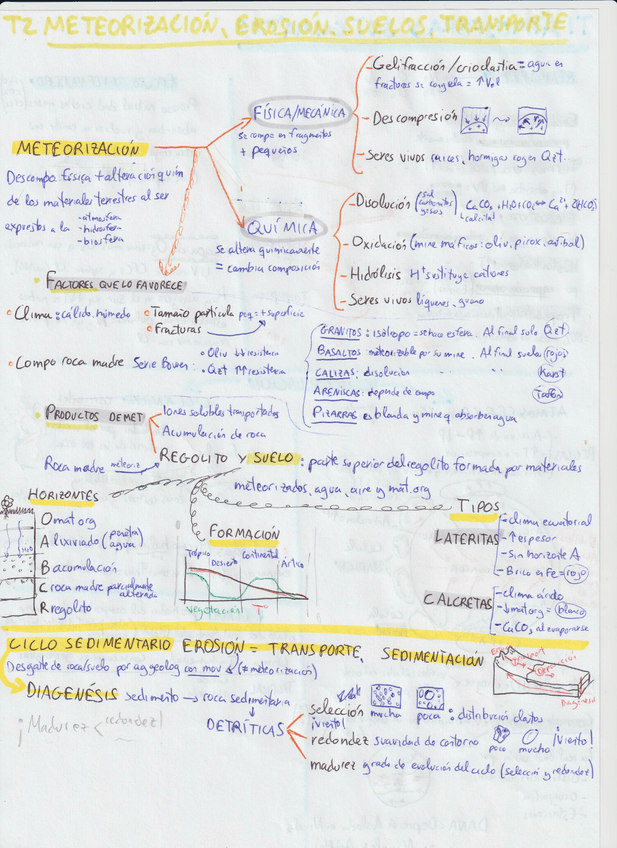 T2 METEORIZACIÓN, EROSIÓN, SUELOS, TRANSPORTE
METEORIZACIÓN
Descompo física + alteración quím
de los materiales terrestres al ser
expuestos a la
- atmosfera
- hidrosfera
- biosfera
FÍSICA/MECÁNICA
se rompe en fragmentos
+ pequeños
- Gelifracción/crioclastia = agua en
fracturas se congela = ↑ Vol
- Descompresión
- Seres vivos raices, hormigas rogen Qzt...
QUÍMICA
se altera quimicamente
= cambia composición
- Disolución (sal carbonatos yesos)
CaCO3 + H2CO3 ↔ Ca2+ 2HCO3
calcita
- Oxidación (mine máficos: oliv, pirox, anfibol)
- Hidrólisis H+ sustituye cationes
- Seres vivos líquenes, guano
• FACTORES QUE LO FAVORECE
• Clima: cálido, húmedo
• Tamaño partícula peq = + superficie
• Fracturas
• Compo roca madre Serie Bowen:
• Oliv ↓↓ resistencia
• Qzt ↑↑ resistencia
GRANITOS: isótropo = se hace esfera. Al final solo Qzt
BASALTOS meteorizable por su mine. Al final suelos rojos
CALIZAS: disolución " " Karst
ARENISCAS: depende de compo
PIZARRAS es blanda y mine q absorben agua
• PRODUCTOS DE MET
Iones solubles transportados
Acumulación de roca
Roca madre meteoriz → REGOLITO Y SUELO: parte superior del regolito formada por materiales
meteorizados, agua, aire y mat. org
HORIZONTES
O mat org
A lixiviado (penetra agua)
H2O
B acumulación
C roca madre parcialmente alterada
R regolito
FORMACIÓN
Trópico Desierto Continental Ártico
Vegetación T
TIPOS
LATERITAS
- clima ecuatorial
- ↑ espesor
- Sin horizonte A
- B rico en Fe = rojo
CALCRETAS
- clima árido
- ↓ mat org = blanco
- CaCO3 al evaporarse
CICLO SEDIMENTARIO EROSIÓN = TRANSPORTE, SEDIMENTACIÓN
Desgaste de roca/suelo por ag geolog con mov (≠ meteorización)
Transport
Diagénesis
DIAGENÉSIS sedimento → roca sedimentaria
¡Madurez < redondez!
DETRÍTICAS
selección mucha poca : distribució clastos
¡viento!
redondez suavidad de contorno poco mucho ¡viento!
madurez grado de evolución del ciclo (selecció y redondez)